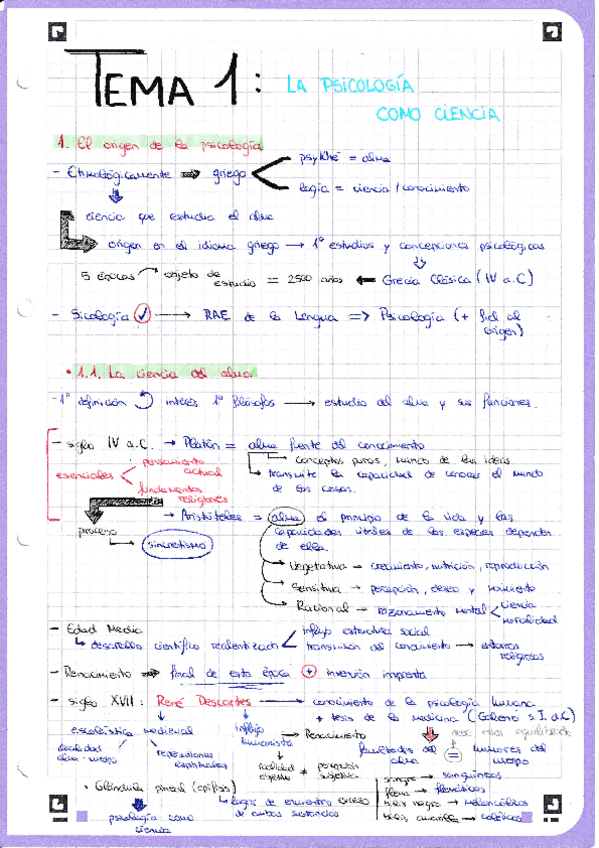 TEMA 1: LA PSICOLOGÍA
COMO CIENCIA
1. El origen de la psicología
- Etimológicamente ⇒ griego
psykhé = alma
logía = ciencia / conocimiento
ciencia que estudia el alma
origen en el idioma griego → 1º estudios y concepciones psicológicas
5 épocas objeto de estudio = 2500 años ← Grecia Clásica (IV a.C)
- Sicología ✓ → RAE de la Lengua => Psicología (+ fiel al
origen)
• 1.1. La ciencia del alma
- 1ª definición interés 1º filósofos → estudio del alma y sus funciones.
- siglo IV a.C. → Platón = alma fuente del conocimiento
→ conceptos puros, mundo de las ideas.
→ transmite la capacidad de conocer el mundo
de las cosas.
esenciales
pensamiento
actual
fundamentos
religiones
→ Aristóteles = alma el principio de la vida y las
capacidades vitales de las especies dependen
de ella.
proceso
→ sincretismo
Vegetativa → crecimiento, nutrición, reproducción
Sensitiva → percepción, deseo y movimiento
Racional → razonamiento mental
ciencia
moralidad
- Edad Media
desarrollo científico
influjo estructura social
transmisión del conocimiento → entornos
religiosos
- Renacimiento → final de esta época + inversión imprenta
- siglo XVII: René Descartes → conocimiento de la psicología humana
+ tesis de la medicina (Galeno s. I. d.C)
escolástica medieval
dualidad
alma-cuerpo
repercusiones
espirituales
influjo
humanista
→ Renacimiento
realidad
objetiva ≠ perspectiva
subjetiva
facultades del
alma
=
humores del
cuerpo
sangre → sanguíneos
flema → flemáticos
bilis negra → melancólicos
bilis amarilla → coléricos
• Glándula pineal (epífisis)
→ lugar de encuentro
de ambas sustancias
exceso
psicología como
ciencia